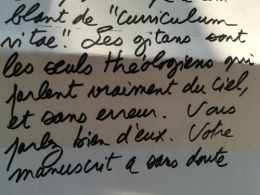 blant de "curriculum
vitae". Les gitans sont
les seuls théologiens qui
parlent vraiment du ciel,
et sans erreur. Vous
parlez bien d'eux. Votre
manuscrit a sans doute